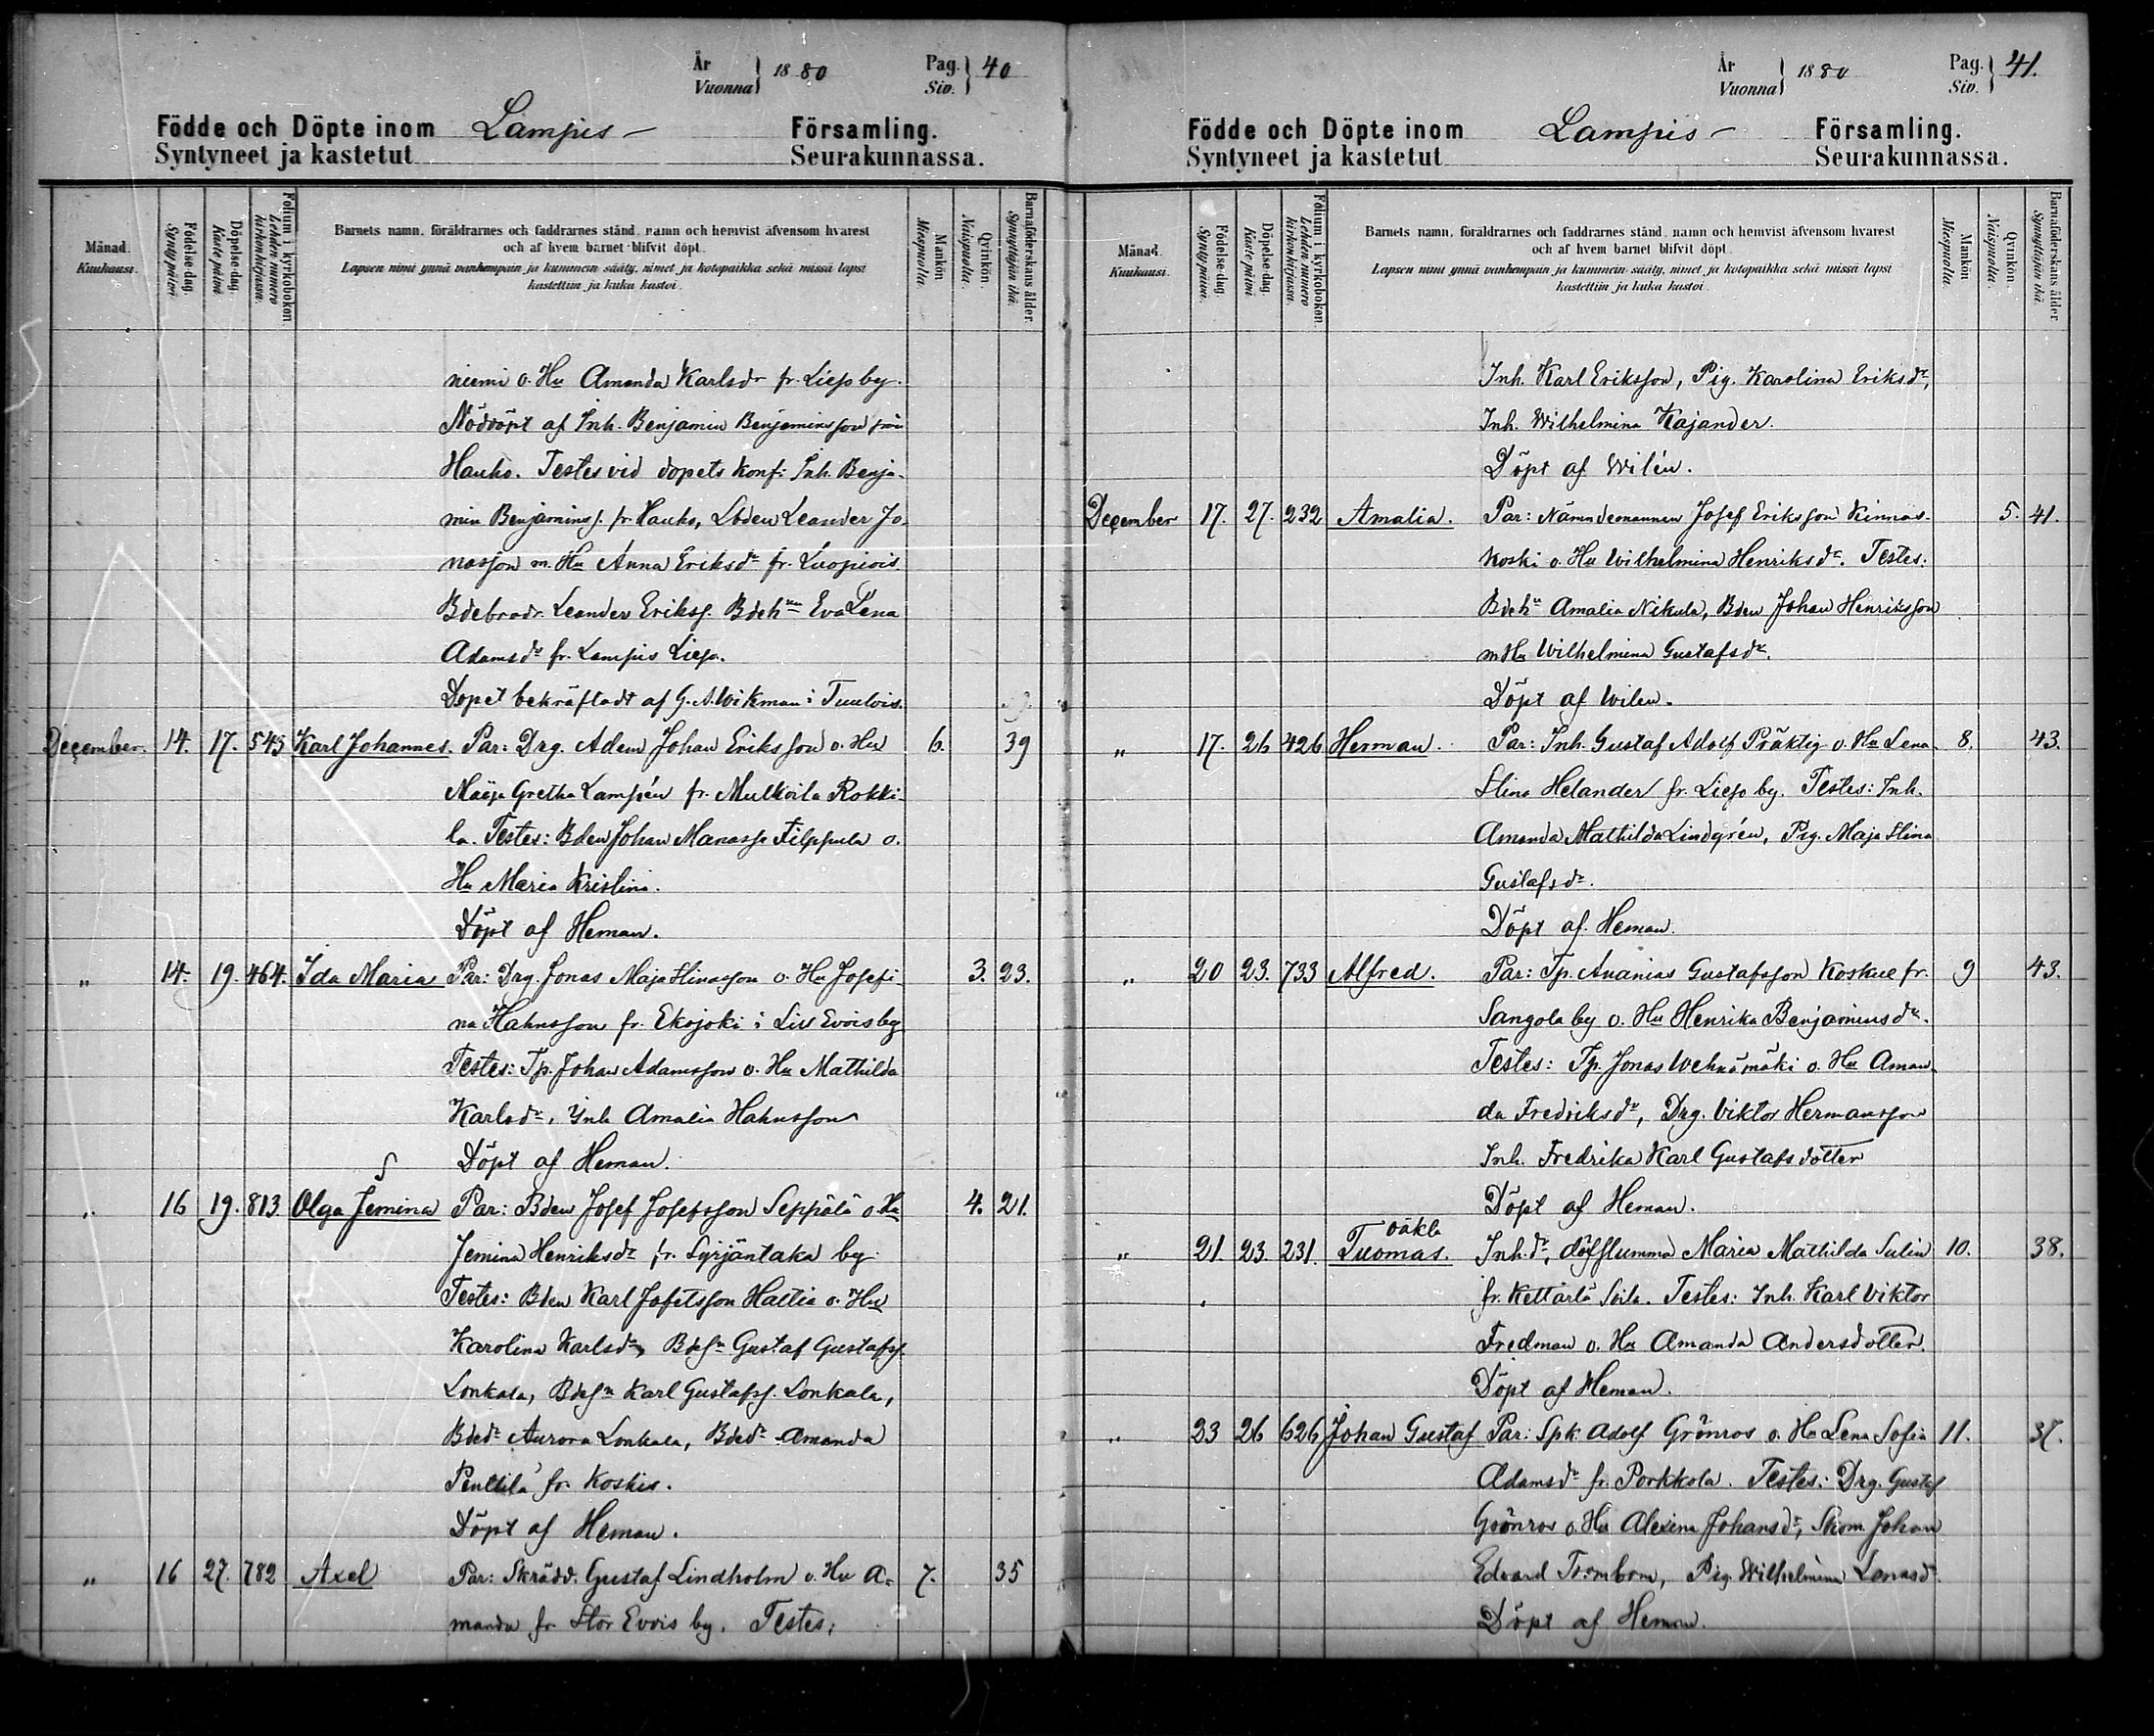 År
Vuonna } 1880
Pag.
Siv. } 40
Födde och Döpte inom Lampis Församling.
Syntyneet ja kastetut Seurakunnassa.
Månad.
Kuukausi.
Födelse-dag.
Synty päivä.
Döpelse-dag.
Kaste päivä
Folium i kyrkoboken.
Lehden numero kirkonkirjassa.
Barnets namn, föräldrarnes och faddrarnes stånd, namn och hemvist äfvensom hvarest
och af hvem barnet blifvit döpt.
Lapsen nimi ynnä vanhempain ja kummein sääty, nimet ja kotopaikka sekä missä lapsi
kastettiin ja kuka kastoi.
Mankön
Miespuolia.
Qvinkön.
Naispuolia.
Barnaföderskans ålder.
Synnyttäjän ikä.
niemi o. Hu Amanda Karlsdr fr. Lieso by.
Nöddöpt af Inh. Benjamin Benjaminsson från
Hauho. Testes vid dopets konf: Inh. Benja-
min Benjamins. fr. Hauho, Lbden Leander Jo-
nasson m. Hu Anna Eriksdr fr. Luopiois.
Bdebrodr. Leander Eriks. Bdehun Eva Lena
Adamsdr fr. Lampis Lieso.
Dopet bekräftadt af G. A. Wikman i Tuulois.
December. 14. 17. 545 Karl Johannes. Par: Drg. Adam Johan Eriksson o. Hu 6. 39
Maija Gretha Lampén fr. Mulkoila Rokki-
la. Testes: Bden Johan Manasse Filppula o.
Hu Maria Kristina.
Döpt af Heman.
" 14. 19. 464. Ida Maria Par: Drg. Jonas Maja Stinasson o. Hu Josefi- 3. 23.
na Hahnsson fr. Ekojoki i Lill Evois by
Testes: Tp. Johan Adamsson o. Hu Mathilda
Karlsdr, Inh Amalia Hahnsson
Döpt af Heman.
" 16 19. 813 Olga Jemina Par: Bden Josef Josefsson Seppälä o. Hu 4. 21.
Jemina Henriksdr fr. Syrjäntaka by.
Testes: Bden Karl Josefsson Hattia o. Hu
Karolina Karlsdr, Bdesn Gustaf Gustafss.
Lonkala, Bdesn Karl Gustafss. Lonkala,
Bdedr Aurora Lonkala, Bdedr Amanda
Penttilä fr. Koskis.
Döpt af Heman.
" 16 27. 782 Axel Par: Skrädd. Gustaf Lindholm o. Hu A- 7. 35
manda fr. Stor Evois by. Testes:
År
Vuonna } 1880
Pag.
Siv. } 41.
Födde och Döpte inom Lampis Församling.
Syntyneet ja kastetut Seurakunnassa.
Månad.
Kuukausi.
Födelse-dag.
Synty päivä.
Döpelse-dag.
Kaste päivä
Folium i kyrkoboken.
Lehden numero kirkonkirjassa.
Barnets namn, föräldrarnes och faddrarnes stånd, namn och hemvist äfvensom hvarest
och af hvem barnet blifvit döpt.
Lapsen nimi ynnä vanhempain ja kummein sääty, nimet ja kotopaikka sekä missä lapsi
kastettiin ja kuka kastoi.
Mankön
Miespuolia.
Qvinkön.
Naispuolia.
Barnaföderskans ålder
Synnyttäjän ikä.
Inh. Karl Eriksson, Pig. Karolina Eriksdr,
Inh. Wilhelmina Kajander.
Döpt af Wilén.
December 17. 27. 232 Amalia. Par: Nämndemannen Josef Eriksson Kinnas- 5. 41.
koski o. Hu Wilhelmina Henriksdr. Testes:
Bdehu Amalia Nikula, Bden Johan Henriksson
m Hu Wilhelmina Gustafsdr.
Döpt af Wilen.
" 17. 26 426 Herman. Par: Inh. Gustaf Adolf Präktig o. Hu Lena 8. 43.
Stina Helander fr. Lieso by. Testes: Inh.
Amanda Mathilda Lindgrén, Pig. Maja Stina
Gustafsdr.
Döpt af Heman.
" 20 23. 733 Alfred. Par: Tp. Ananias Gustafsson Koskue fr. 9 43.
Sangola by o. Hu Henrika Benjaminsdr.
Testes: Tp. Jonas Wehnämäki o. Hu Aman-
da Fredriksdr, Drg. Viktor Hermansson
Inh. Fredrika Karl Gustafsdotter
Döpt af Heman.
oäkta
" 21. 23. 231. Tuomas. Inh.dr, döfstumma Maria Mathilda Sulin 10. 38.
fr. Kettarla Soila. Testes: Inh. Karl Viktor
Fredman o. Hu Amanda Andersdotter.
Döpt af Heman.
" 23 26 626 Johan Gustaf Par: Spk. Adolf Grönros o. Hu Lena Sofia 11. 37.
Adamsdr fr. Porkkola. Testes: Drg. Gustaf
Grönros o. Hu Alexina Johansdr, Skom. Johan
Edvard Trombom, Pig. Wilhelmina Lenasdr.
Döpt af Heman.